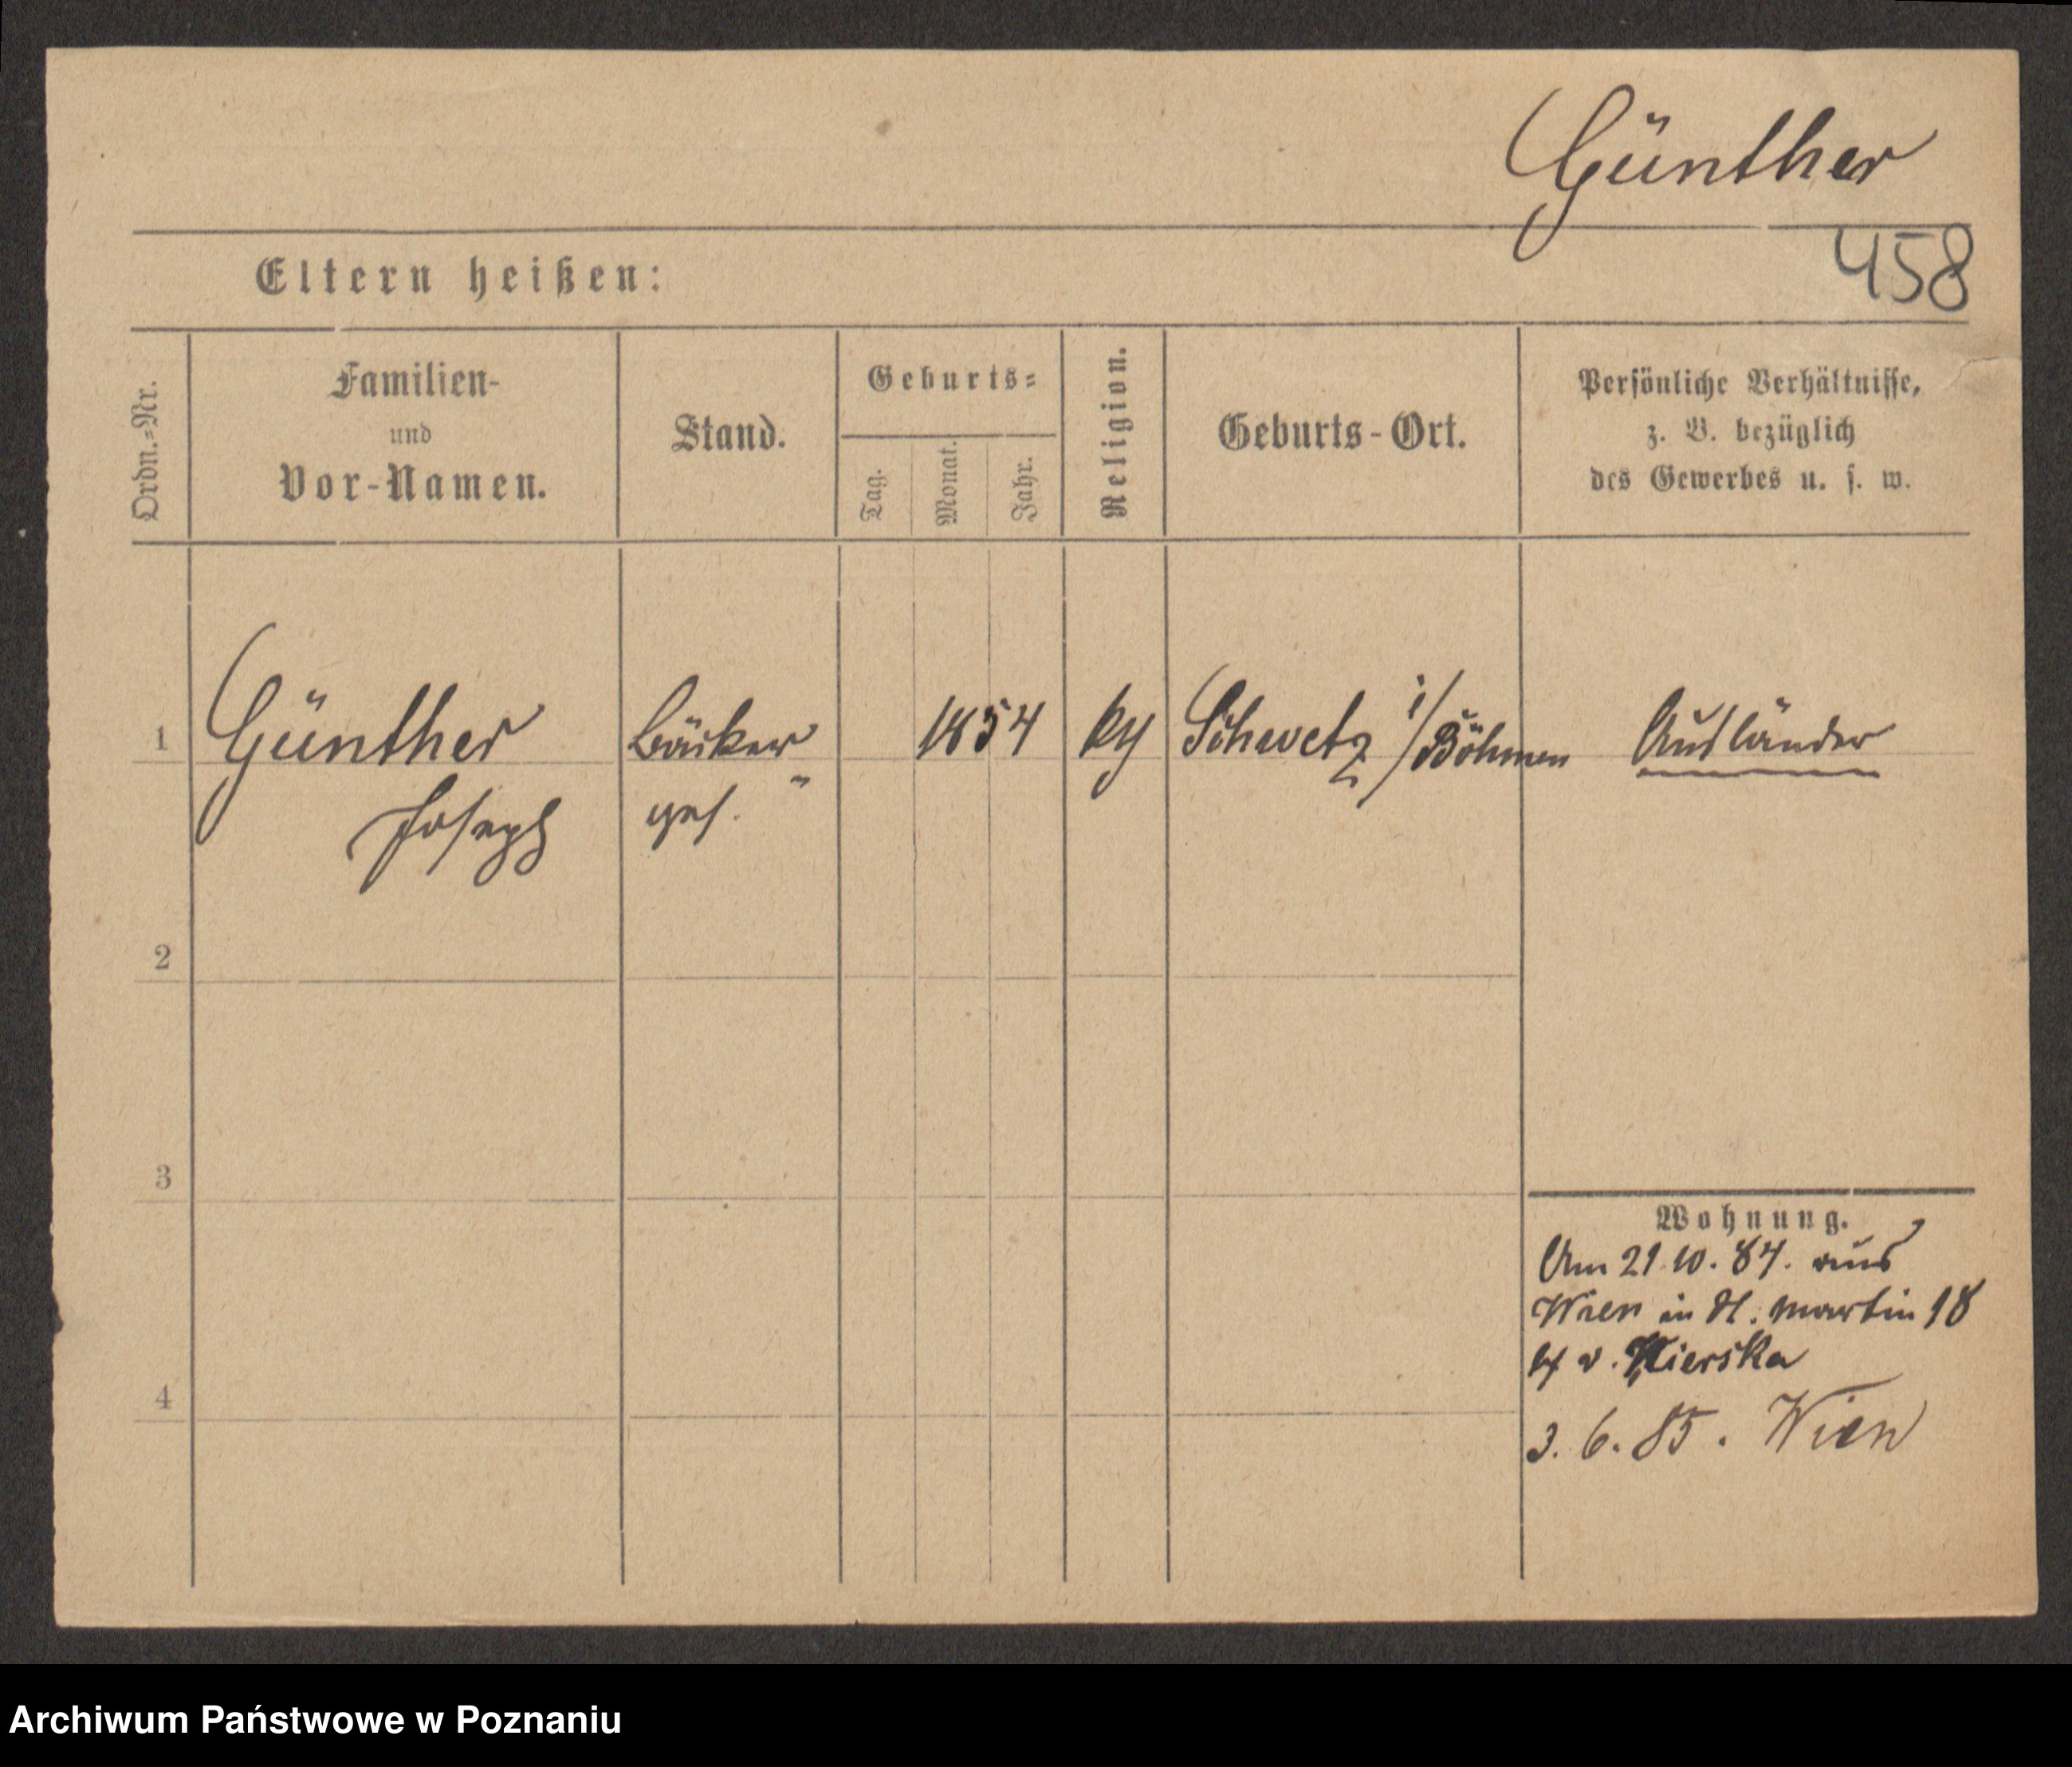 Günther
458
Eltern heißen:
Ordn.=Nr.
Familien-
und
Vor-Namen.
Stand.
Geburts=
Tag.
Monat.
Jahr.
Religion.
Geburts-Ort.
Persönliche Verhältnisse,
z. B. bezüglich
des Gewerbes u. s. w.
1 Günther Bäcker 1854 kg Schwetz i/Böhmen Ausländer
Joseph ges. "
2
3
4
Wohnung.
Am 21.10.84. aus
Wien in St. Martin 18
v.
3. 6. 85. Wien
Archiwum Państwowe w Poznaniu